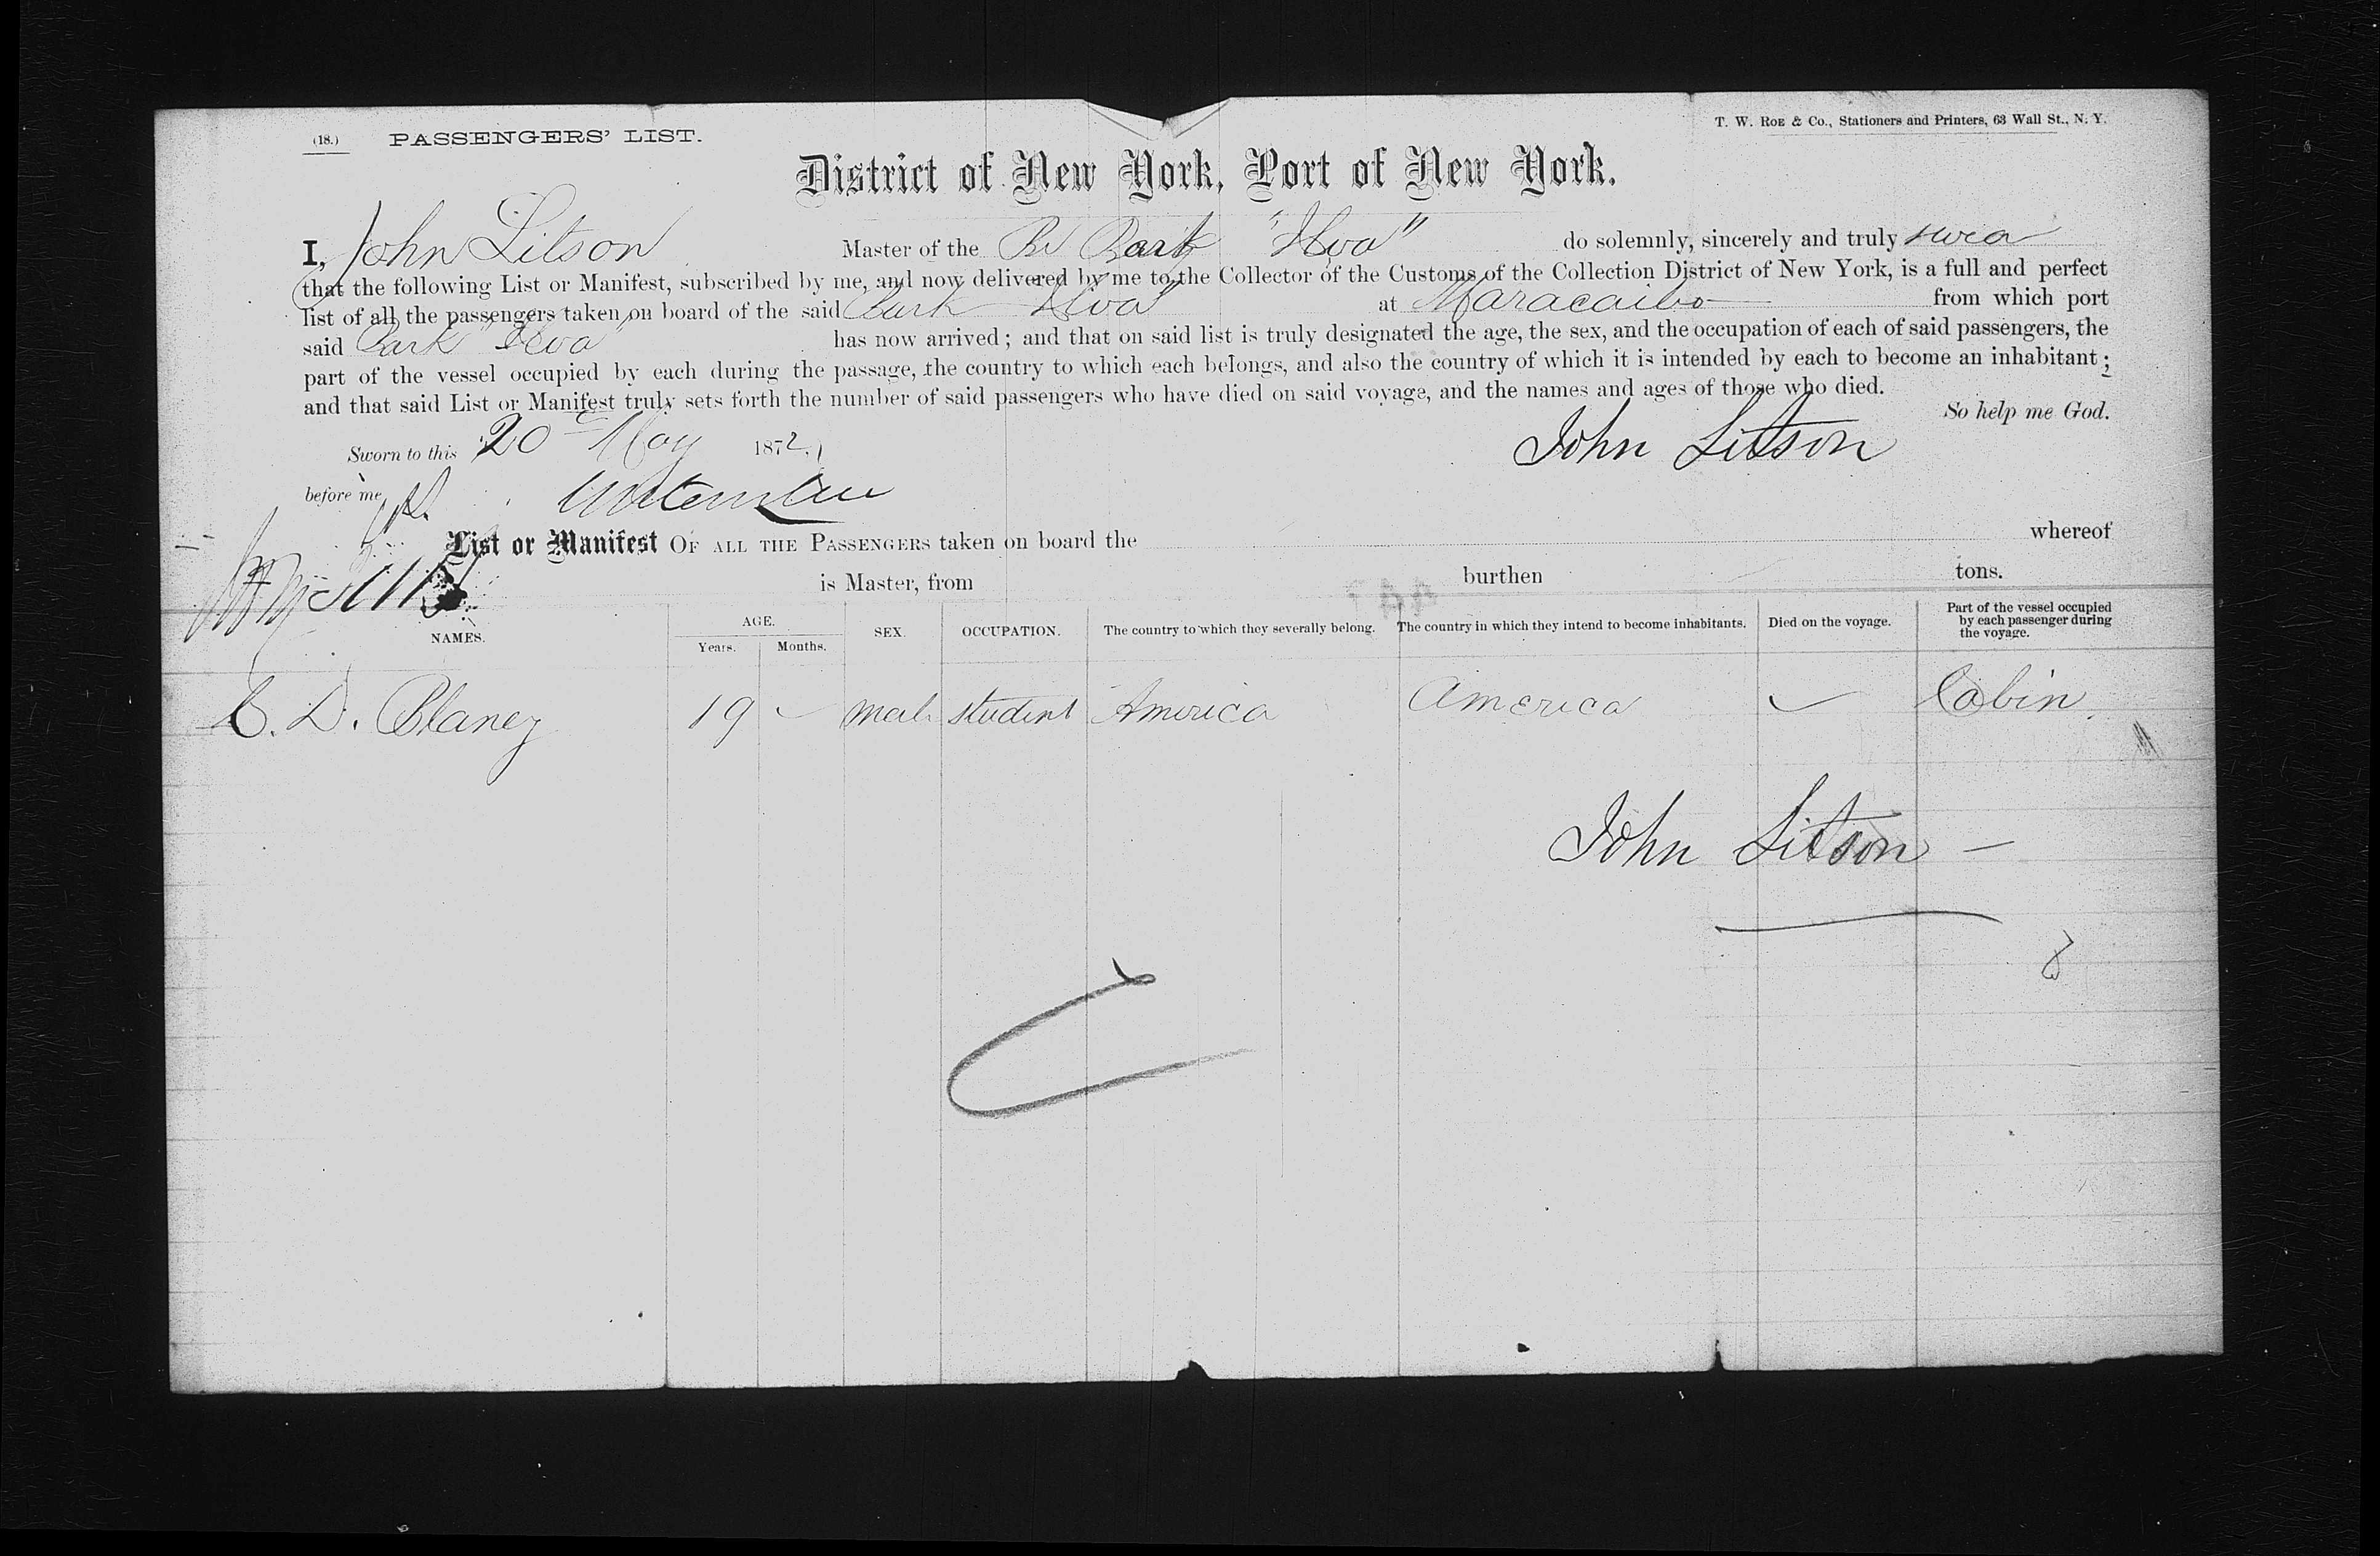 (18.) PASSENGERS' LIST. T. W. ROE & Co., Stationers and Printers, 63 Wall St., N. Y.
District of New York, Port of New York.
I, John Litson Master of the Br Bark do solemnly, sincerely and truly
that the following List or Manifest, subscribed by me, and now delivered by me to the Collector of the Customs of the Collection District of New York, is a full and perfect
list of all the passengers taken on board of the said Bark at Maracaibo from which port
said Bark has now arrived; and that on said list is truly designated the age, the sex, and the occupation of each of said passengers, the
part of the vessel occupied by each during the passage, the country to which each belongs, and also the country of which it is intended by each to become an inhabitant;
and that said List or Manifest truly sets forth the number of said passengers who have died on said voyage, and the names and ages of those who died.
So help me God.
Sworn to this 20 May 1872, John Litson
before me
List or Manifest OF ALL THE PASSENGERS taken on board the whereof
is Master, from burthen tons.
NAMES. AGE. Years. Months. SEX. OCCUPATION. The country to which they severally belong. The country in which they intend to become inhabitants. Died on the voyage. Part of the vessel occupied by each passenger during the voyage.
D. Blaney 19 male student America America Cabin
John Litson